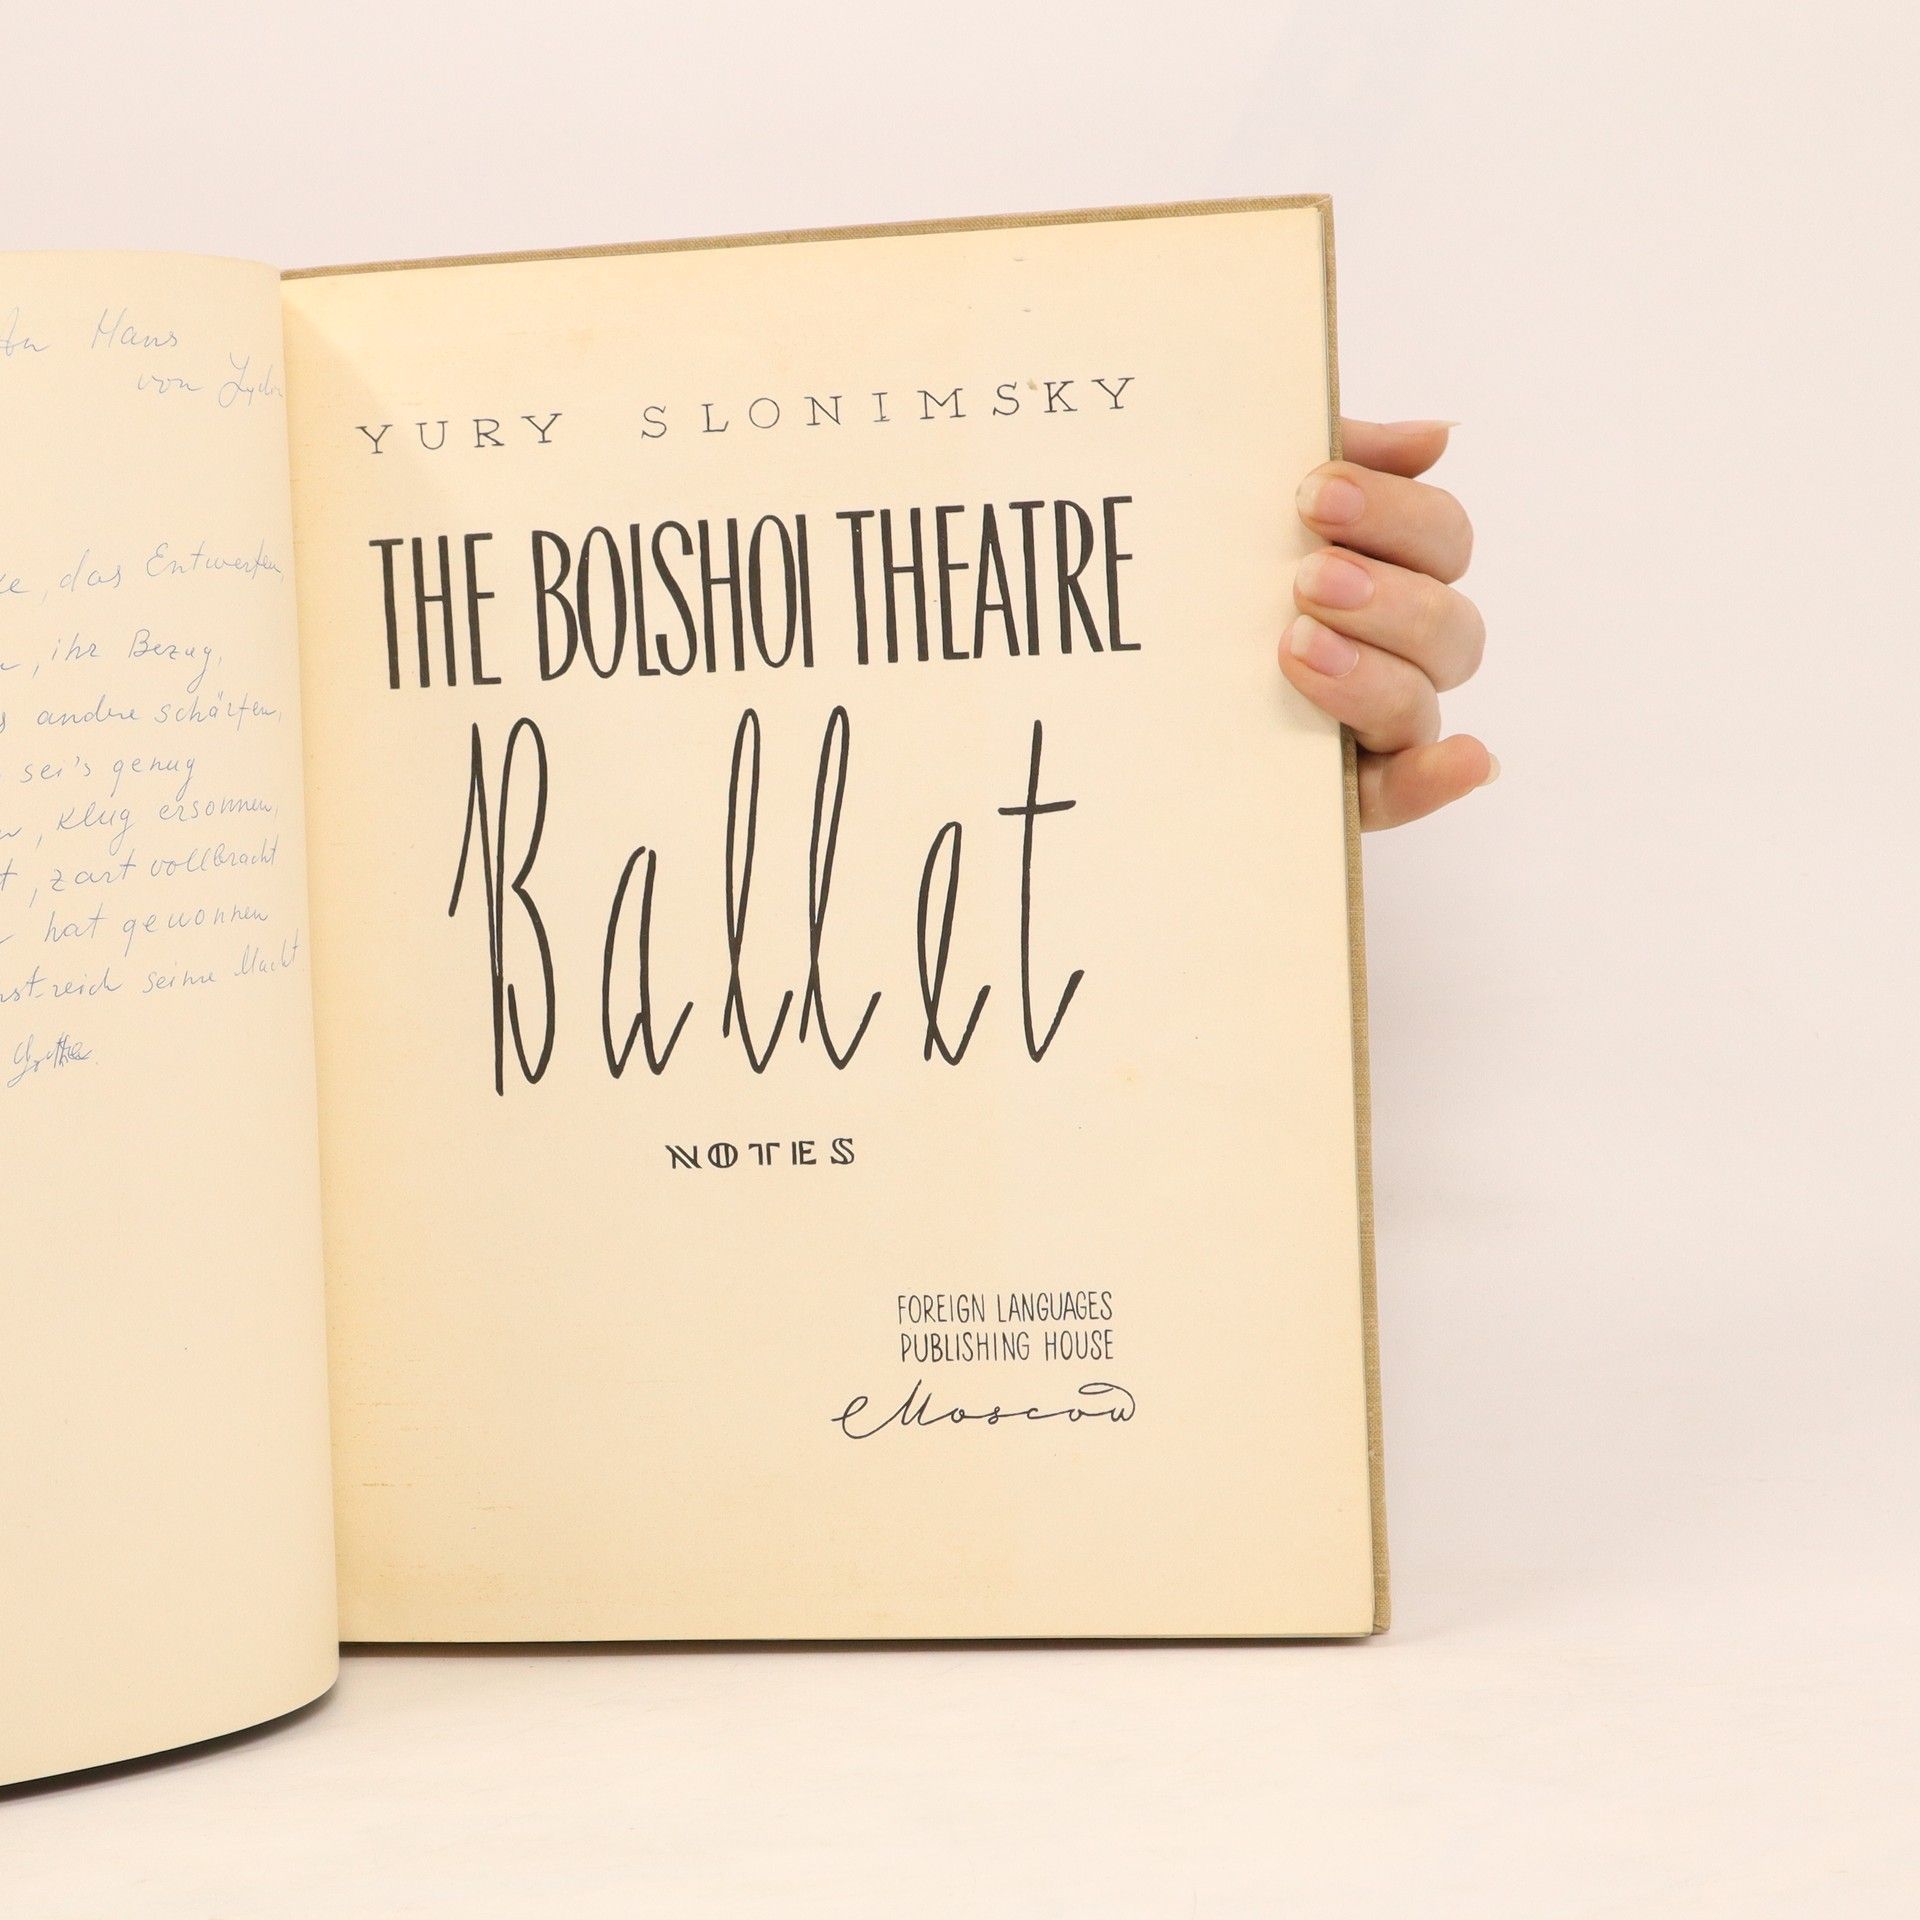 An Hans
von Lydia
, das Entwerfen,
, ihr Bezug,
andre schärfen,
sei's genug
, klug ersonnen,
, zart vollbracht
hat gewonnen
seine Macht
Goethe.
YURY SLONIMSKY
THE BOLSHOI THEATRE
Ballet
NOTES
FOREIGN LANGUAGES
PUBLISHING HOUSE
Moscow